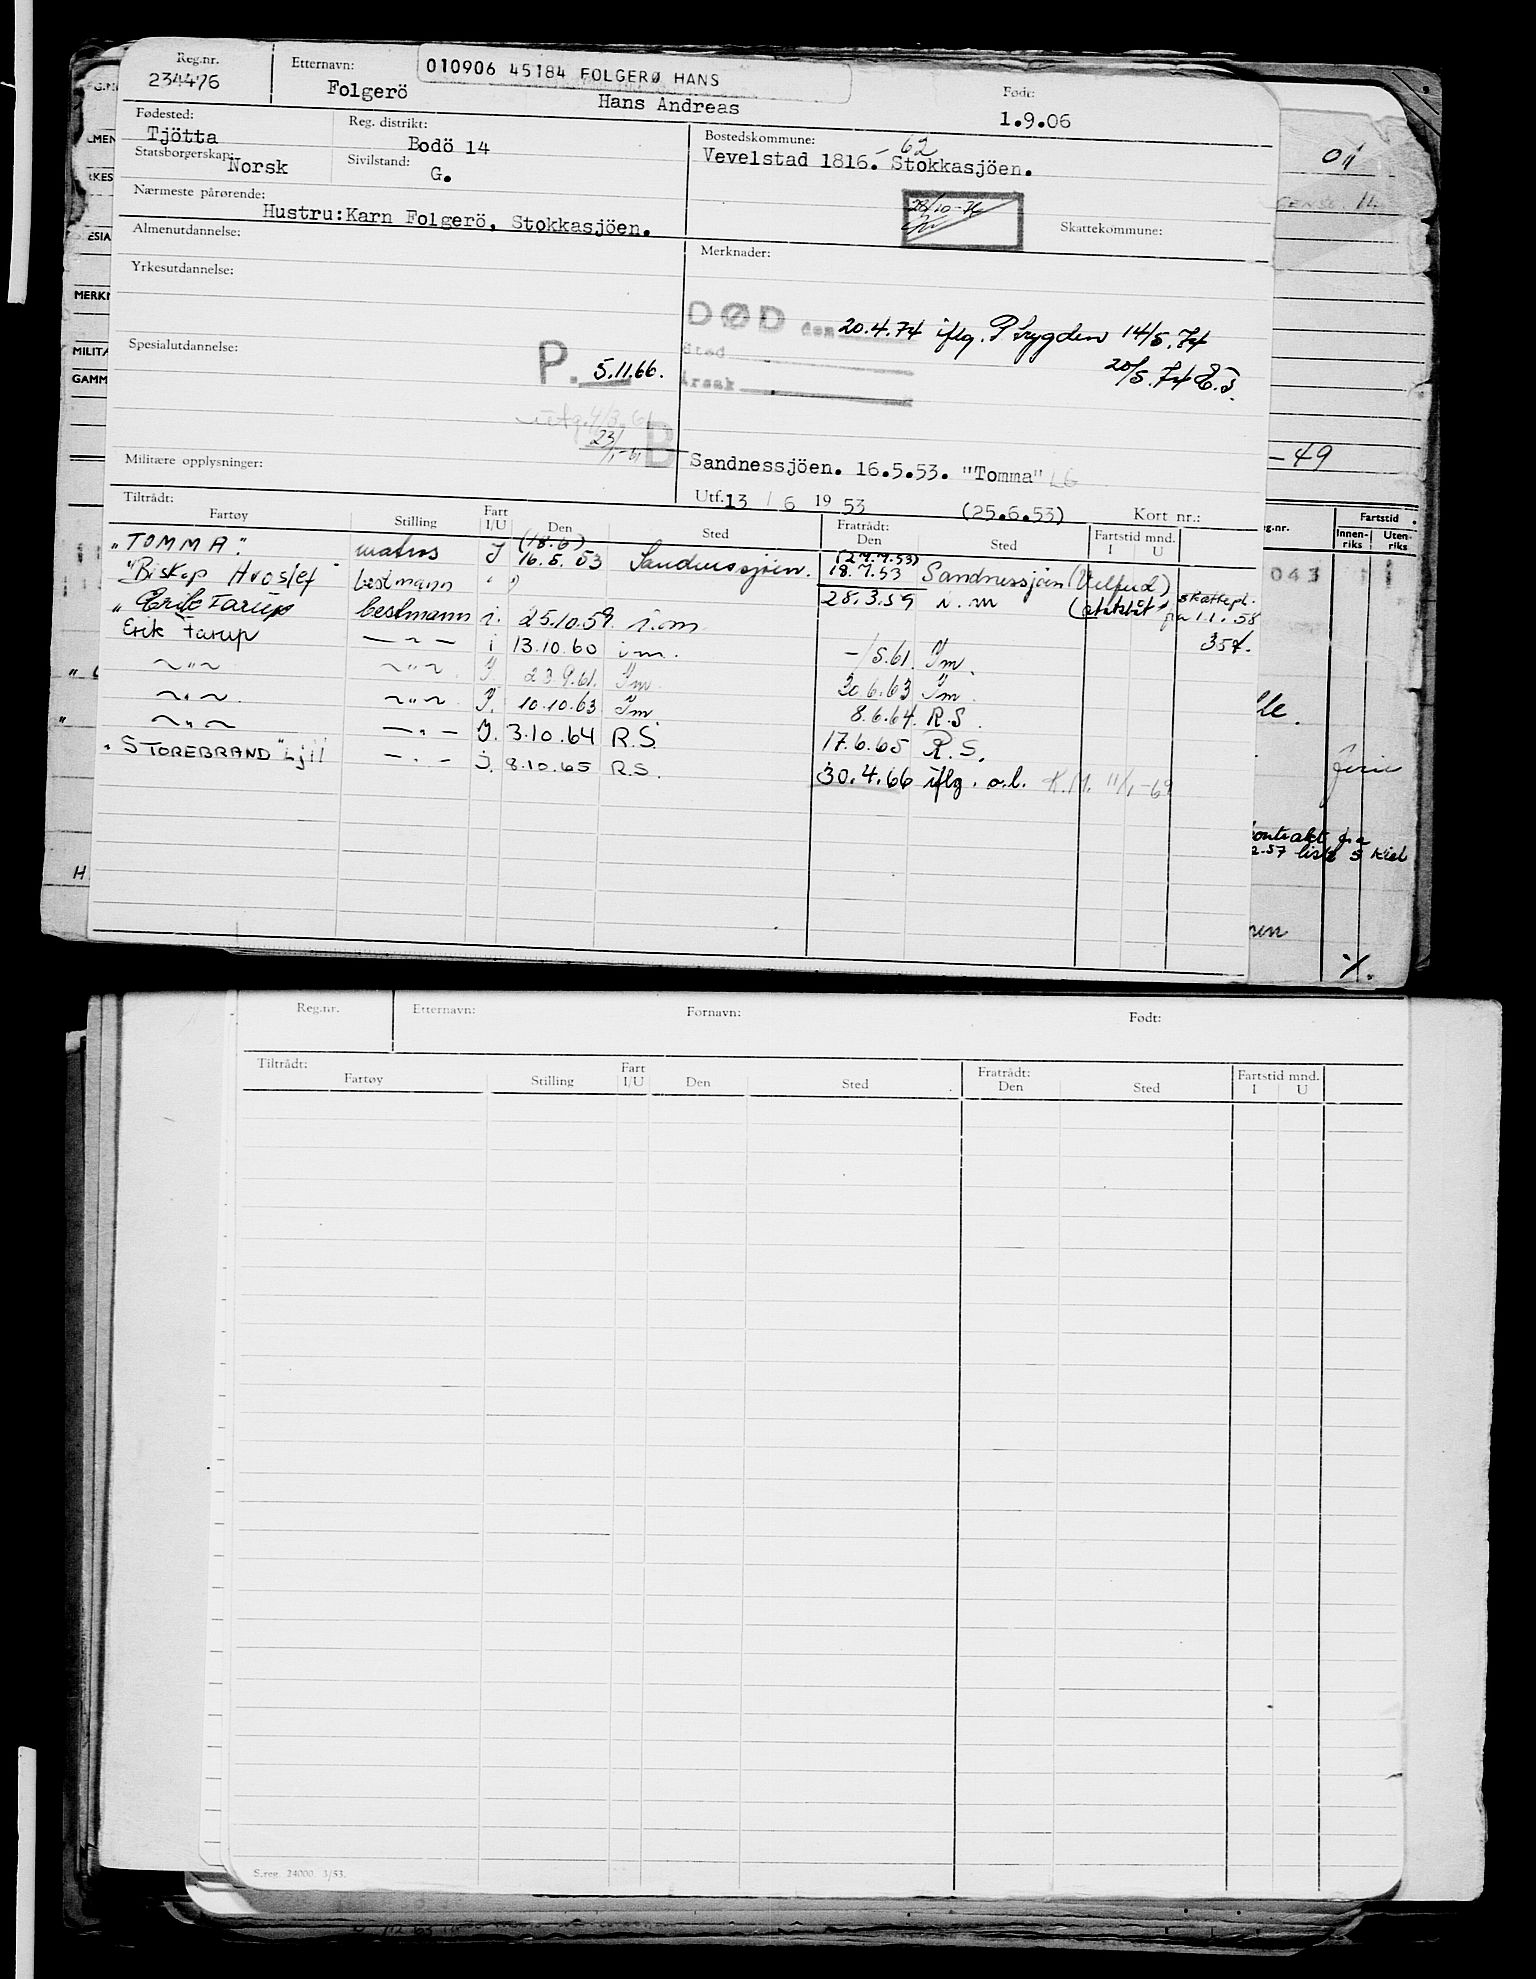 Reg.nr. Etternavn: 010906 45184 FOLGERØ HANS Født:
234476 Folgerö Hans Andreas 1.9.06
Fødested: Reg. distrikt: Bostedskommune:
Tjötta Bodö 14 Vevelstad 1816.-62 Stokkasjöen.
Statsborgerskap: Norsk Sivilstand: G.
Nærmeste pårørende:
Hustru:Karn Folgerö, Stokkasjöen.
28/10-76
Skattekommune:
Almenutdannelse: Merknader:
Yrkesutdannelse:
DØD den 20.4.74 iflg. Trygden 14/5.74
Sted 20/5.74 E.S.
Årsak
Spesialutdannelse: P. 5.11.66.
23/1-61 B
Militære opplysninger: Sandnessjöen. 16.5.53. "Tomma" LG
Utf. 13 / 6 19 53 (25.6.53) Kort nr.:
Tiltrådt: Fartøy Stilling Fart I/U Den Sted Fratrådt: Den Sted Fartstid mnd. I U
"TOMMA". matros J (18.6) 16.5.53 Sandnessjøen. (27.7.53) 18.7.53 Sandnessjöen (Velferd)
"Biskop Hvoslef" bestmann " " 28.3.59 i.m skattepl. fra 1.1.58
"Erik Farup bestmann i. 25.10.59. i.m 354.
Erik Farup — " — i 13.10.60 i m. -/5.61. Im.
~ " ~ ~ " ~ I. 23.9.61. Im. 30.6.63 Im.
~ " ~ ~ " ~ I. 10.10.63 Im. 8.6.64. R.S.
~ " ~ — " — I. 3.10.64 R.S. 17.6.65 R.S.
"STOREBRAND" — " — I. 8.10.65 R.S. 30.4.66 iflg. o.l. K.M. 11/1-69
MERKN
MILITÆ
GAMM
-49
g.nr. Fartstid
Innen-riks Uten-riks
043
kontrakt fra
2.57 liste 5 Kiel
Reg.nr. Etternavn: Fornavn: Født:
Tiltrådt: Fartøy Stilling Fart I/U Den Sted Fratrådt: Den Sted Fartstid mnd. I U
S.reg. 24000. 3/53.